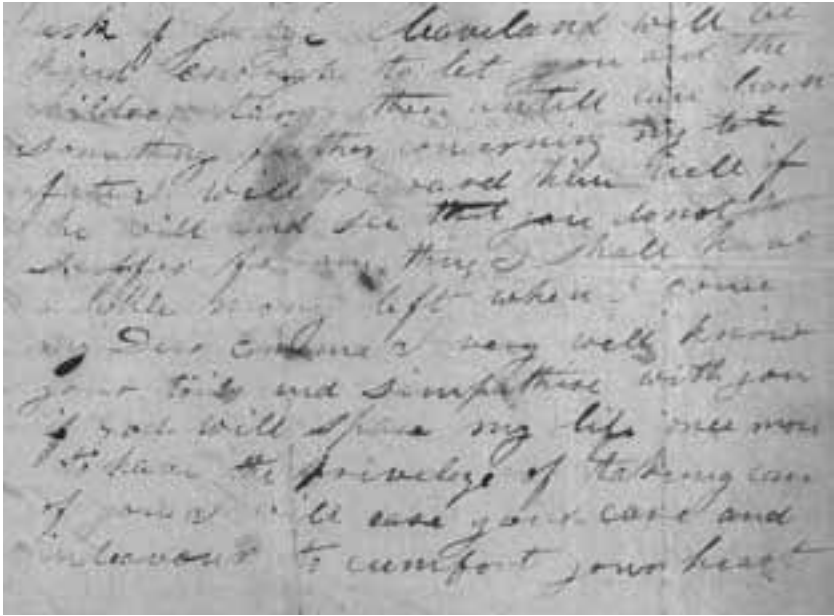 ask if Judge Cleaveland will be
kind enough to let you and the
children stay there untill can learn
something further concerning my lot
fate I will reward him well if
he will and see that you do not
suffer for any thing I shall have
a little money left when I come
my Dear Emma I very well know
your toils and simpathise with you
if god will spare my life once more
to have the privelege of taking care
of you I will ease your care and
indeavour to cumfort your heart